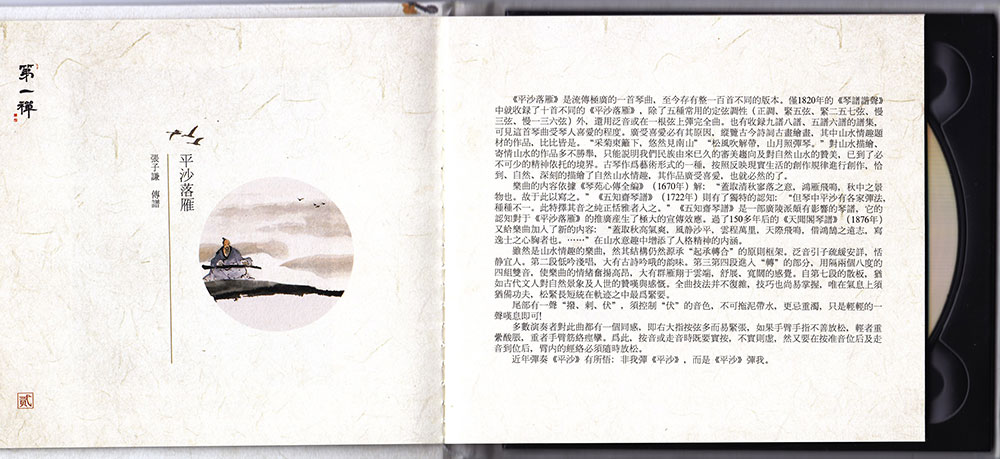 第一禪
平沙落雁
張子謙　傳譜
貳
《平沙落雁》是流傳極廣的一首琴曲，至今存有整一百首不同的版本。僅1820年的《琴譜諧聲》
中就收録了十首不同的《平沙落雁》，除了五種常用的定弦調性（正調、緊五弦、緊二五七弦、慢
三弦、慢一三六弦）外，還用泛音或在一根弦上彈完全曲。也有收録九譜八譜、五譜六譜的譜集，
可見這首琴曲受琴人喜愛的程度。廣受喜愛必有其原因，縱覽古今詩詞古畫繪畫，其中山水情趣題
材的作品，比比皆是。“采菊東籬下，悠然見南山”“松風吹解帶，山月照彈琴。”對山水描繪、
寄情山水的作品多不勝舉，只能説明我們民族由來已久的審美趣向及對自然山水的贊美，已到了必
不可少的精神依托的境界。古琴作爲藝術形式的一種，按照反映現實生活的創作規律進行創作，恰
到、自然、深刻的描繪了自然山水情趣，其作品廣受喜愛，也就必然的了。
樂曲的内容依據《琴苑心傳全編》（1670年）解：“蓋取清秋寥落之意，鴻雁飛鳴，秋中之景
物也。故于此以寫之。”《五知齋琴譜》（1722年）則有了獨特的認知：“但琴中平沙有各家彈法，
種種不一。此特擇其音之純正恬雅者人之。”《五知齋琴譜》是一部廣陵派頗有影響的琴譜，它的
認知對于《平沙落雁》的推廣産生了極大的宣傳效應。過了150多年后的《天聞閣琴譜》（1876年）
又給樂曲加入了新的内容：“蓋取秋高氣爽，風静沙平，雲程萬里，天際飛鳴，借鴻鵠之遠志，寫
逸士之心胸者也。……”在山水意趣中增添了人格精神的内涵。
雖然是山水情趣的樂曲，然其結構仍然源承“起承轉合”的原則框架。泛音引子疏緩安詳，恬
静宜人。第二段低吟淺唱，大有古詩吟哦的韵味。第三第四段進入“轉”的部分，用隔兩個八度的
四組雙音，使樂曲的情緒奮揚高昂，大有群雁翔于雲端，舒展、寬闊的感覺。自第七段的散板，猶
如古代文人對自然景象及人世的贊嘆與感慨。全曲技法并不復雜，技巧也尚易掌握，唯在氣息上須
猶備功夫，松緊長短統在軌迹之中最爲緊要。
尾部有一聲“撥、剌、伏”，須控制“伏”的音色，不可拖泥帶水，更忌重濁，只是輕輕的一
聲嘆息即可！
多數演奏者對此曲都有一個同感，即右大指按弦多而易緊張，如果手臂手指不善放松，輕者重
縈酸脹，重者手臂筋絡痙攣。爲此，按音或走音時既要實按，不實則虛，然又要在按准音位后及走
音到位后，臂内的經絡必須隨時放松。
近年彈奏《平沙》有所悟：非我彈《平沙》，而是《平沙》彈我。